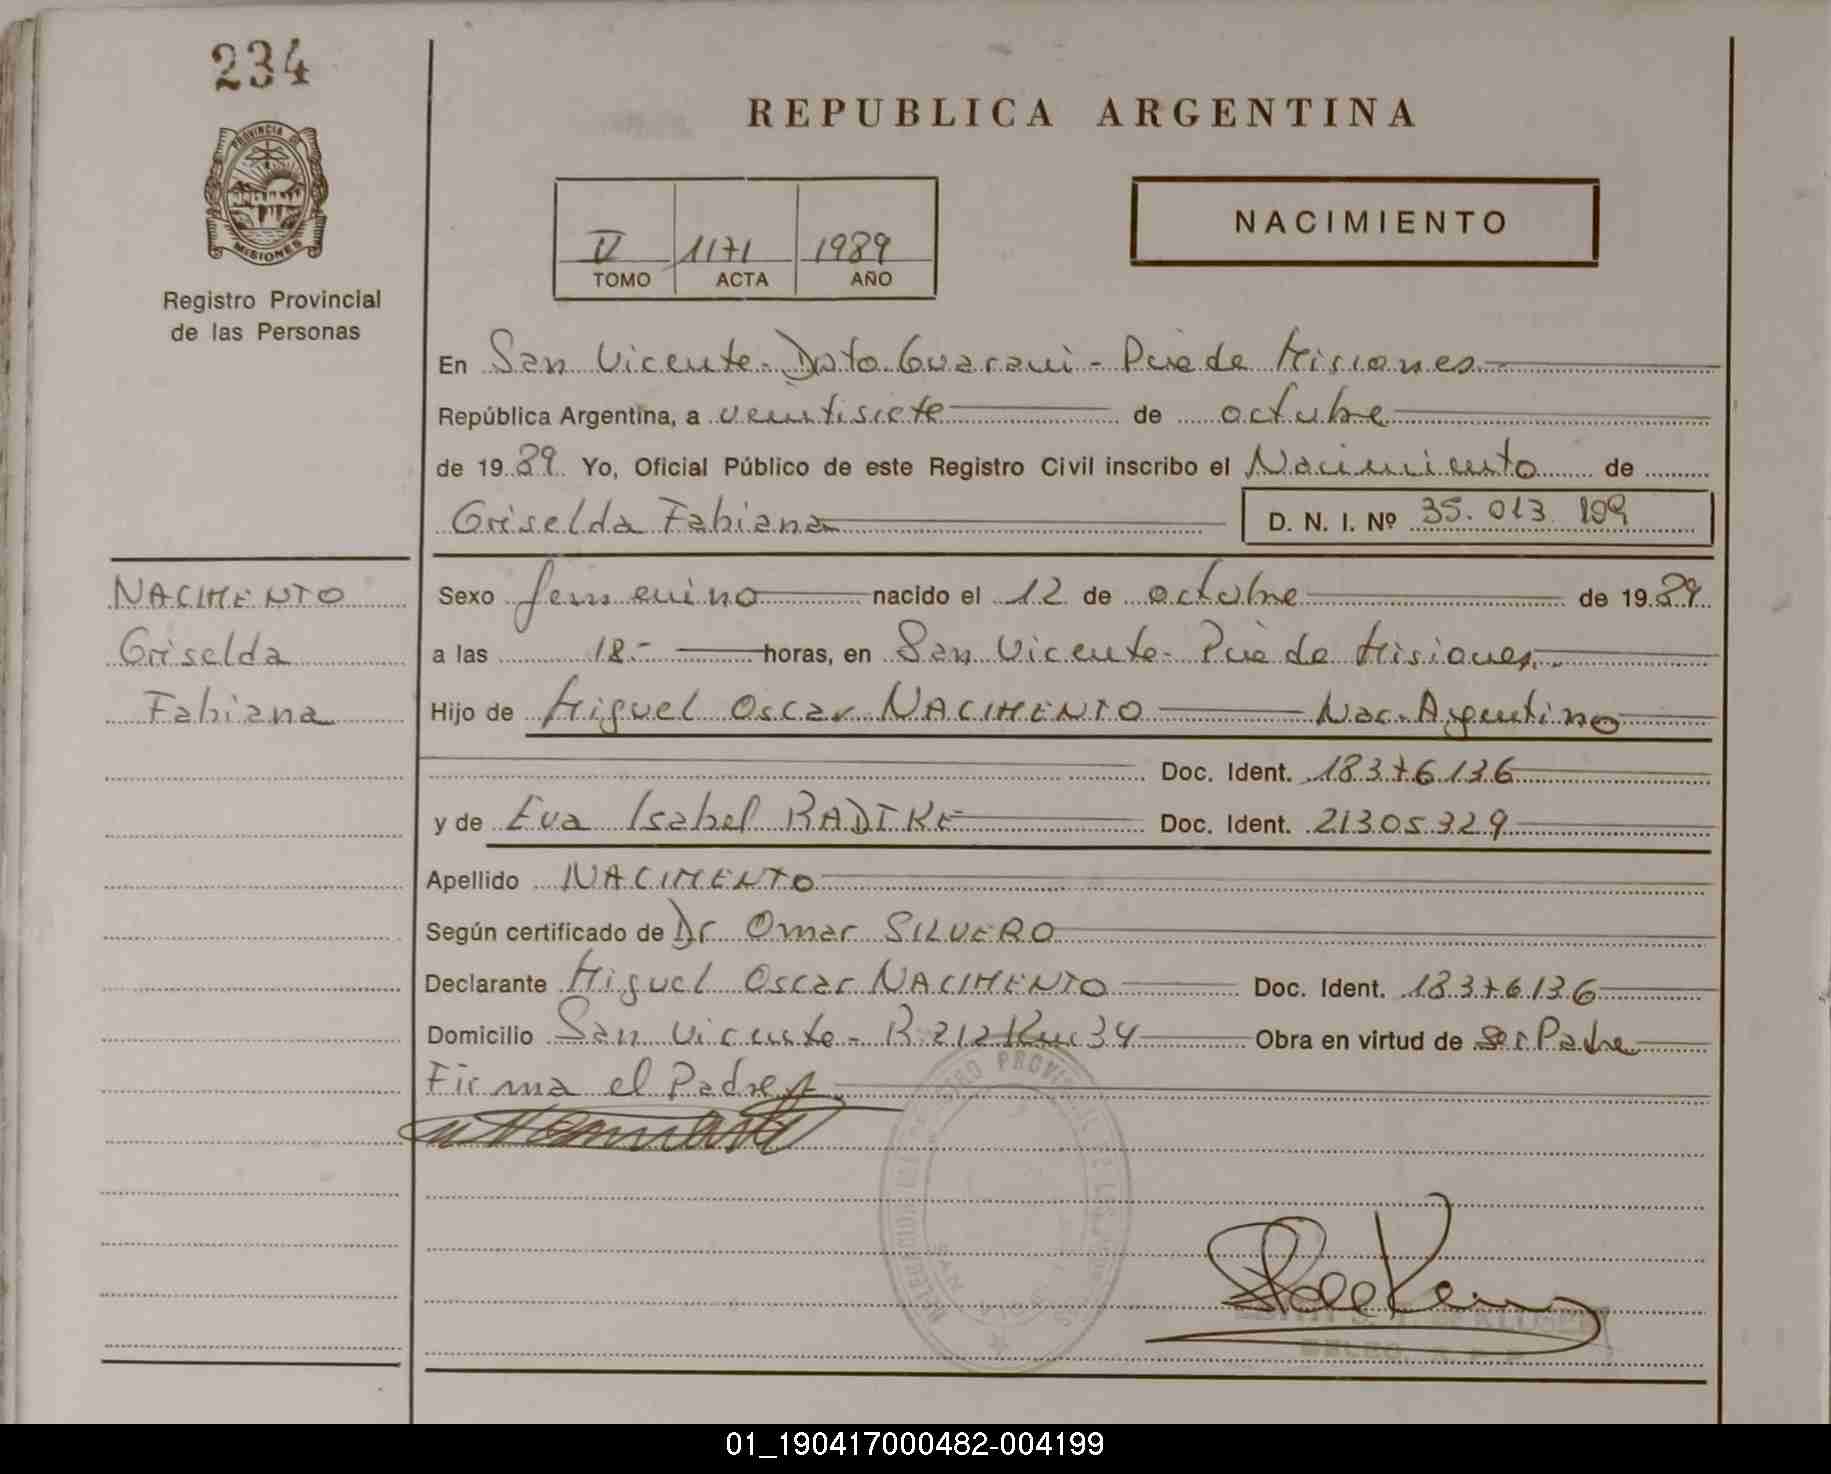 234
PROVINCIA DE
MISIONES
Registro Provincial
de las Personas
REPUBLICA ARGENTINA
NACIMIENTO
1171 1989
TOMO ACTA AÑO
En San Vicente - Dpto Guarani - Pcia de Misiones
República Argentina, a veintisiete de octubre
de 19 89 Yo, Oficial Público de este Registro Civil inscribo el Nacimiento de
Griselda Fabiana
D. N. I. Nº 35.013 199
NACIMENTO
Griselda
Fabiana
Sexo femenino nacido el 12 de octubre de 19 89
a las 18.- horas, en San Vicente - Pcia de Misiones.
Hijo de Miguel Oscar NACIMENTO Nac. Argentino
Doc. Ident. 18376136
y de Eva Isabel RADTKE Doc. Ident. 21305329
Apellido NACIMENTO
Según certificado de Dr Omar SILVERO
Declarante Miguel Oscar NACIMENTO Doc. Ident. 18376136
Domicilio San Vicente - R 212 Km 34 Obra en virtud de ser Padre
Firma el Padre
01_190417000482-004199